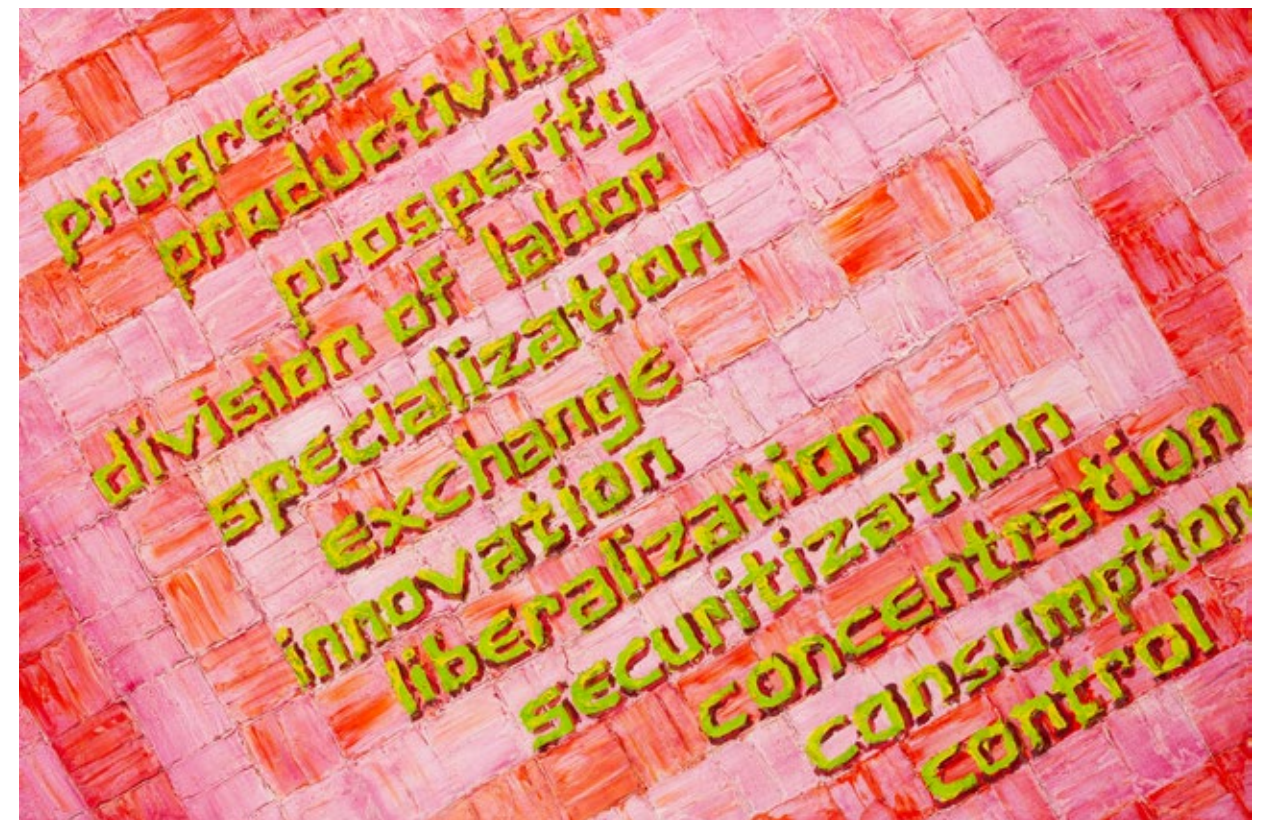 progress
productivity
prosperity
division of labor
specialization
exchange
innovation
liberalization
securitization
concentration
consumption
control